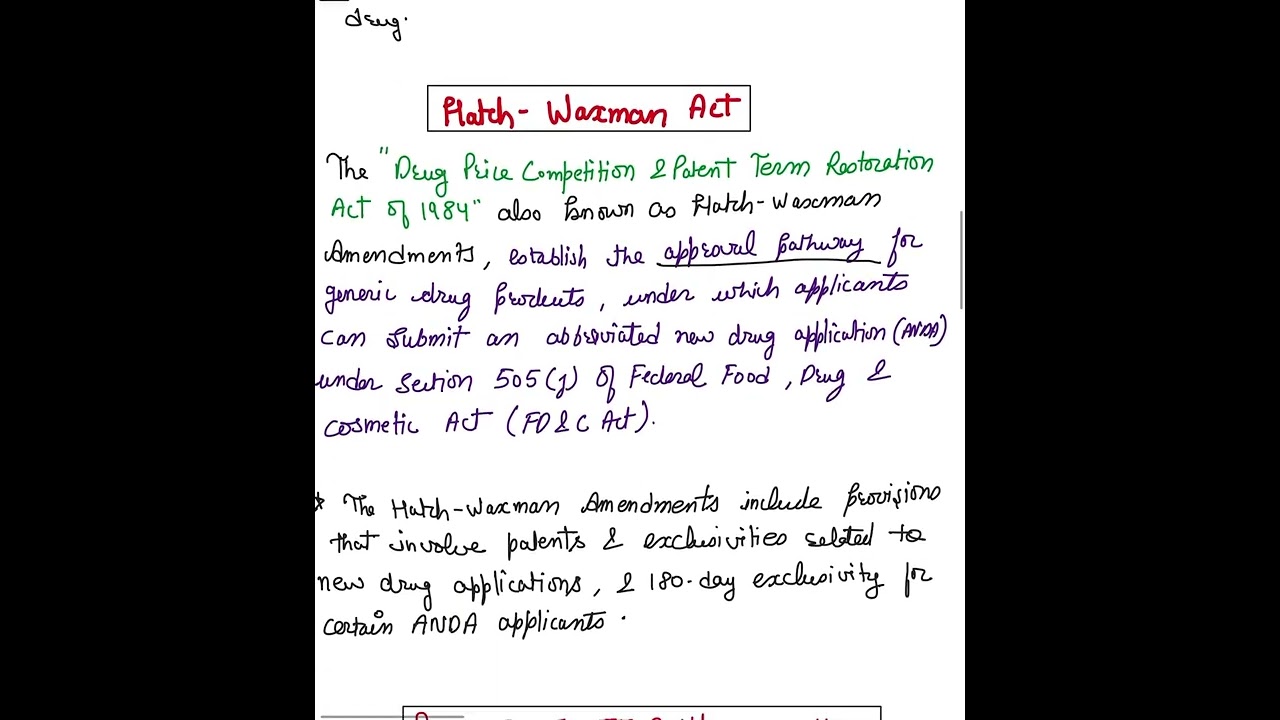 drug.
Hatch-Waxman Act
The "Drug Price Competition & Patent Term Restoration
Act of 1984" also known as Hatch-Waxman
Amendments, establish the approval pathway for
generic drug products, under which applicants
can submit an abbreviated new drug application (ANDA)
under section 505(j) of Federal Food, Drug &
cosmetic Act (FD&C Act).
* The Hatch-Waxman Amendments include provisions
that involve patents & exclusivities related to
new drug applications, & 180-day exclusivity for
certain ANDA applicants.